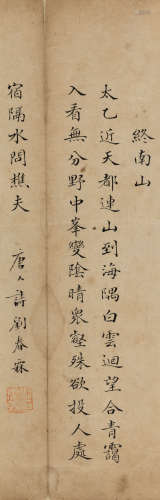 終南山
太乙近天都連山到海隅白雲迴望合青靄
入看無分野中峯變陰晴眾壑殊欲投人處
宿隔水問樵夫 唐人詩劉春霖